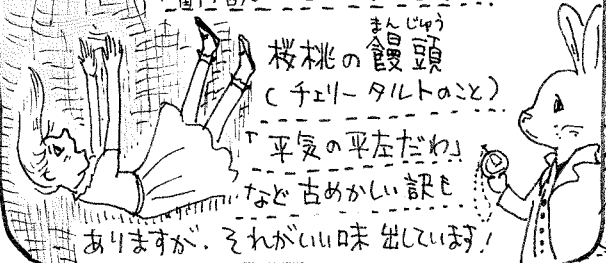 まんじゅう
桜桃の饅頭
(チェリータルトのこと)
「平気の平左だわ」
など古めかしい訳も
ありますが、それがいい味出しています!